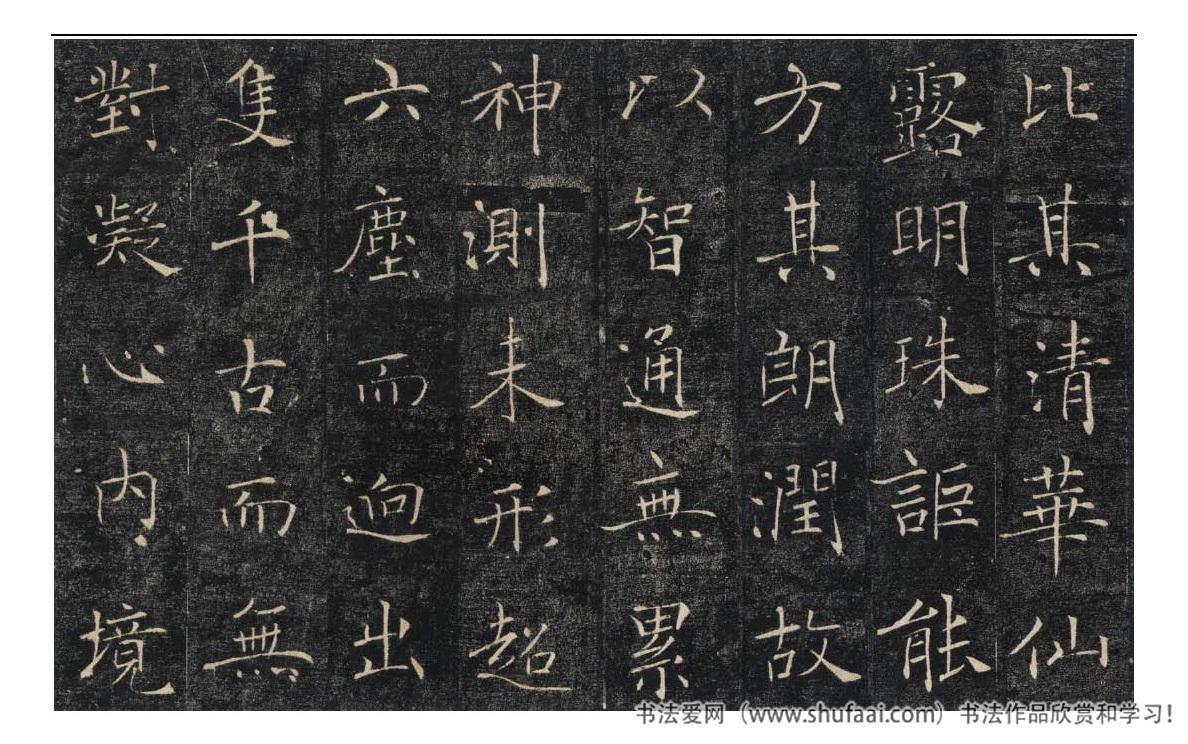 比其清華仙
露明珠詎能
方其朗潤故
以智通無累
神測未形超
六塵而迥出
隻千古而無
對凝心内境
书法爱网（www.shufaai.com）书法作品欣赏和学习！